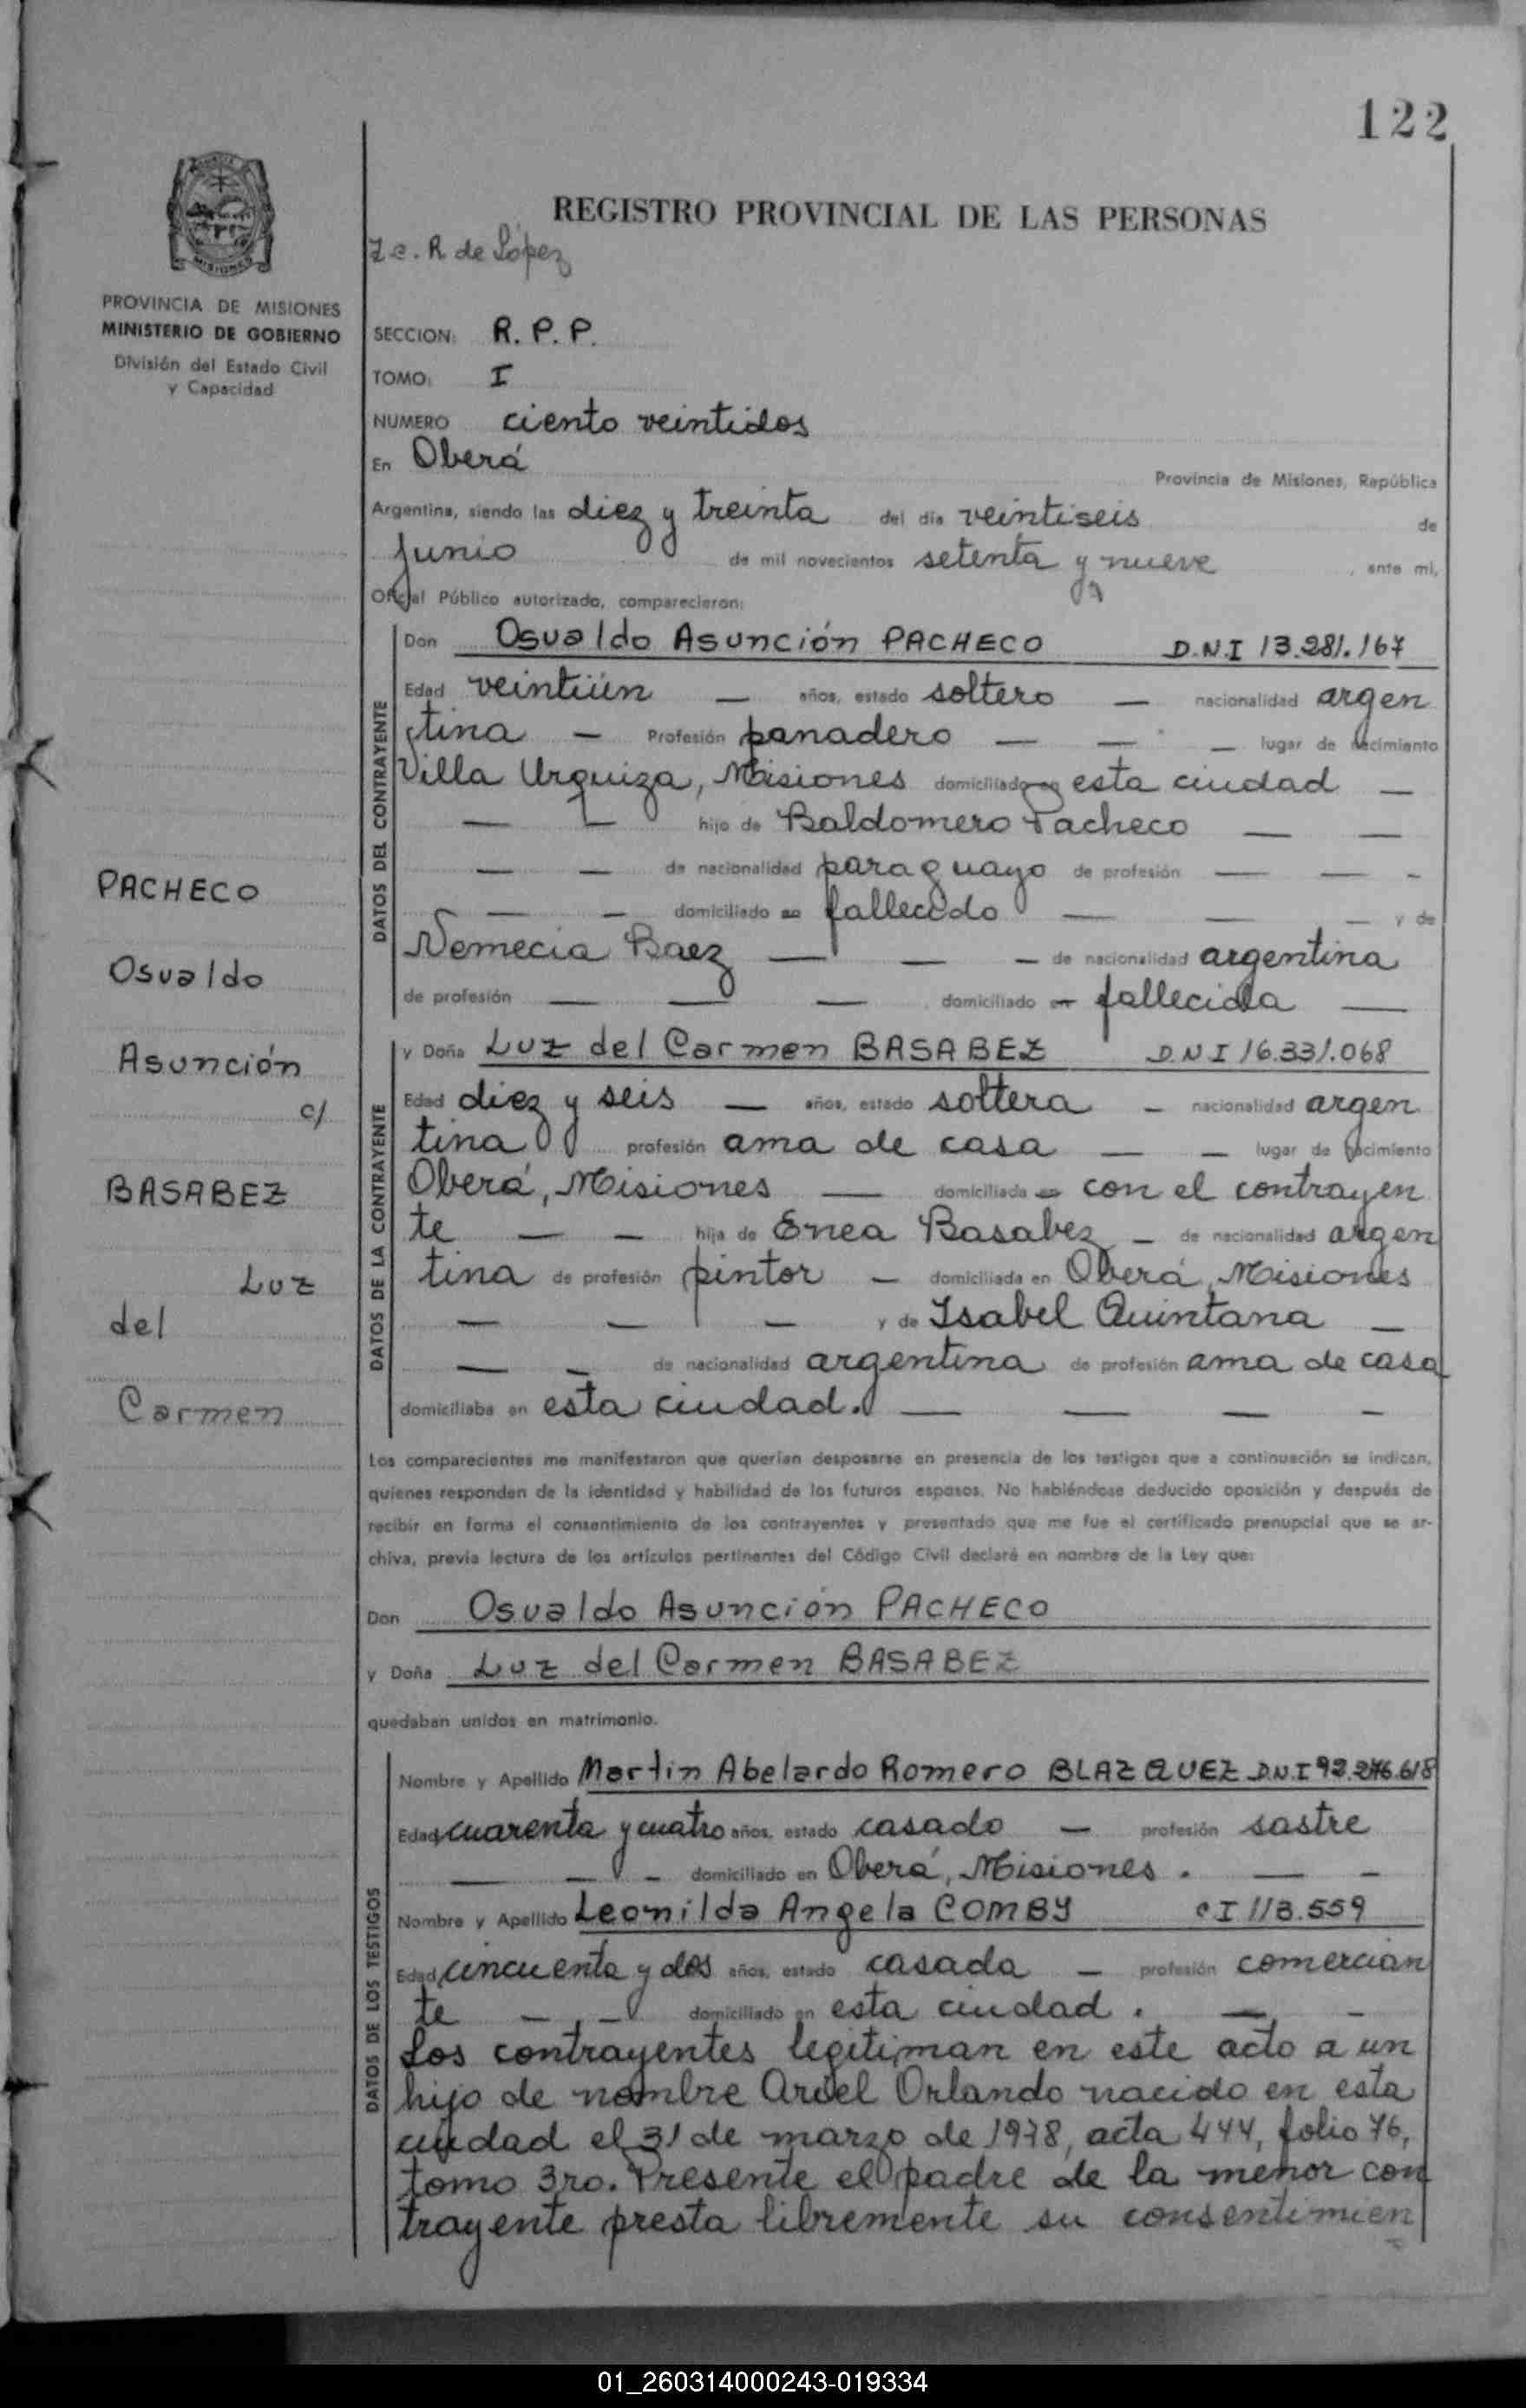 122
REGISTRO PROVINCIAL DE LAS PERSONAS
R de López
MISIONES
PROVINCIA DE MISIONES
MINISTERIO DE GOBIERNO
División del Estado Civil
y Capacidad
SECCION: R. P. P.
TOMO: I
NUMERO ciento veintidos
En Oberá
Provincia de Misiones, República
Argentina, siendo las diez y treinta del día veintiseis de
Junio de mil novecientos setenta y nueve, ante mí,
Oficial Público autorizado, comparecieron:
DATOS DEL CONTRAYENTE
Don Osvaldo Asunción PACHECO D.N.I 13.281.167
Edad veintiún — años, estado soltero — nacionalidad argen
tina — Profesión panadero — — — lugar de nacimiento
Villa Urquiza, Misiones domiciliado en esta ciudad —
— — hijo de Baldomero Pacheco — —
— — de nacionalidad paraguayo de profesión — — -
— — domiciliado en fallecido — — — y de
Nemecia Baez — — — de nacionalidad argentina
de profesión — — — domiciliado en fallecida —
DATOS DE LA CONTRAYENTE
y Doña Luz del Carmen BASABEZ D.N I 16.331.068
Edad diez y seis — años, estado soltera — nacionalidad argen
tina profesión ama de casa — — lugar de nacimiento
Oberá, Misiones — domiciliada en con el contrayen
te — — hija de Enea Basabez — de nacionalidad argen
tina de profesión pintor — domiciliada en Oberá, Misiones
— — — y de Isabel Quintana —
— — de nacionalidad argentina de profesión ama de casa
domiciliaba en esta ciudad. — — — -
PACHECO
Osvaldo
Asunción
c/
BASABEZ
Luz
del
Carmen
Los comparecientes me manifestaron que querían desposarse en presencia de los testigos que a continuación se indican,
quienes responden de la identidad y habilidad de los futuros esposos. No habiéndose deducido oposición y después de
recibir en forma el consentimiento de los contrayentes y presentado que me fue el certificado prenupcial que se ar-
chiva, previa lectura de los artículos pertinentes del Código Civil declaré en nombre de la Ley que:
Don Osvaldo Asunción PACHECO
y Doña Luz del Carmen BASABEZ
quedaban unidos en matrimonio.
DATOS DE LOS TESTIGOS
Nombre y Apellido Martin Abelardo Romero BLAZQUEZ D.N.I 92.276.618
Edad cuarenta y cuatro años, estado casado — profesión sastre
— — - domiciliado en Oberá, Misiones. — —
Nombre y Apellido Leonilda Angela COMBY C I 113.559
Edad cincuenta y dos años, estado casada — profesión comercian
te — — domiciliado en esta ciudad. — -
Los contrayentes legitiman en este acto a un
hijo de nombre Ariel Orlando nacido en esta
ciudad el 31 de marzo de 1978, acta 444, folio 76,
tomo 3ro. Presente el padre de la menor con
trayente presta libremente su consentimien
01_260314000243-019334